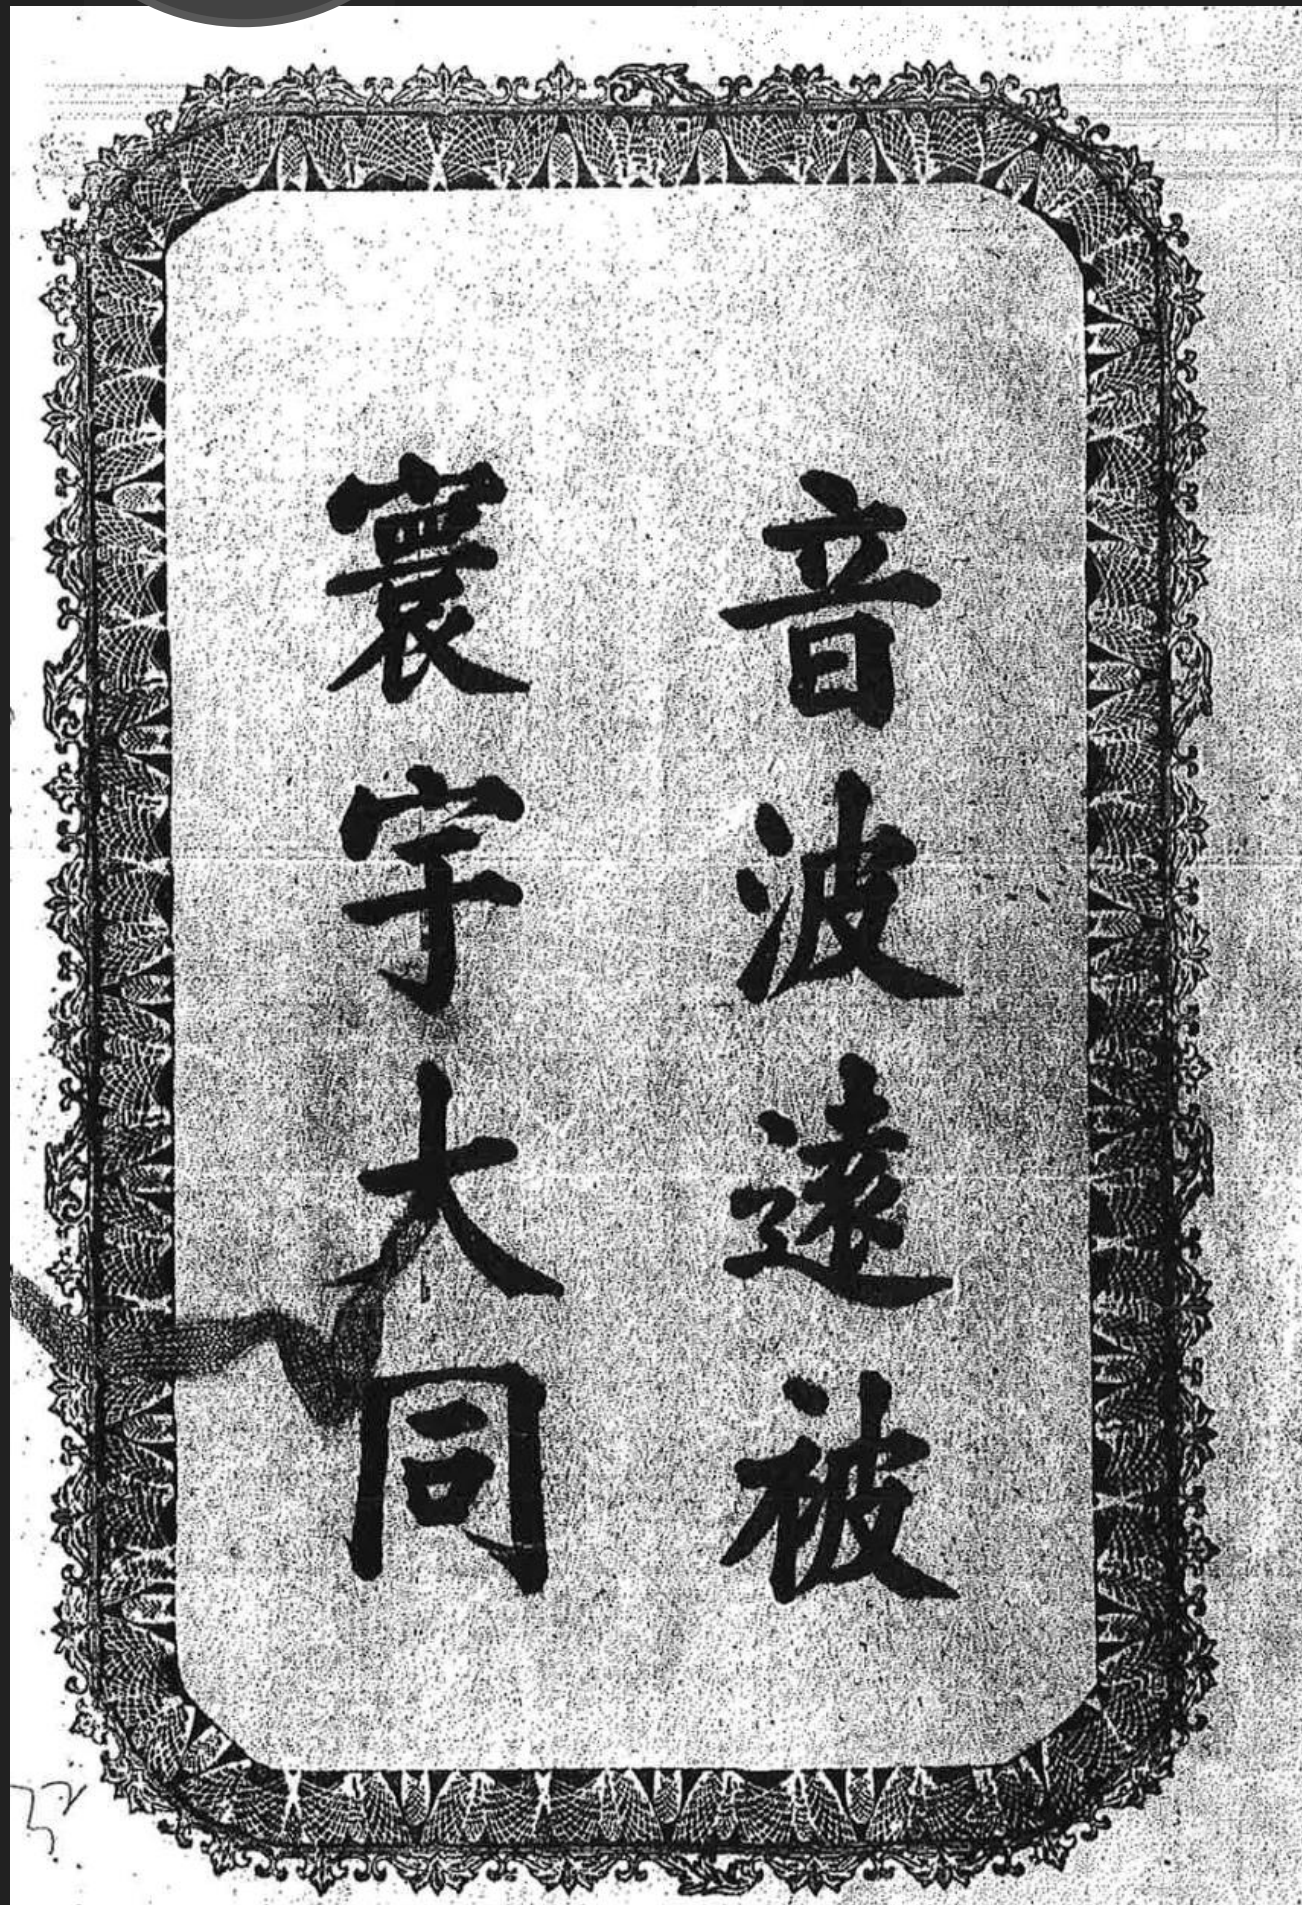 音波遠被
寰宇大同